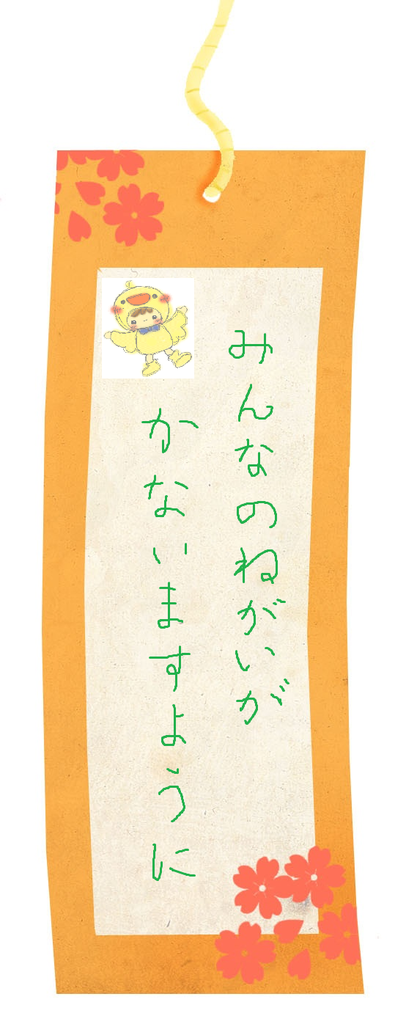 みんなのねがいが
かないますように